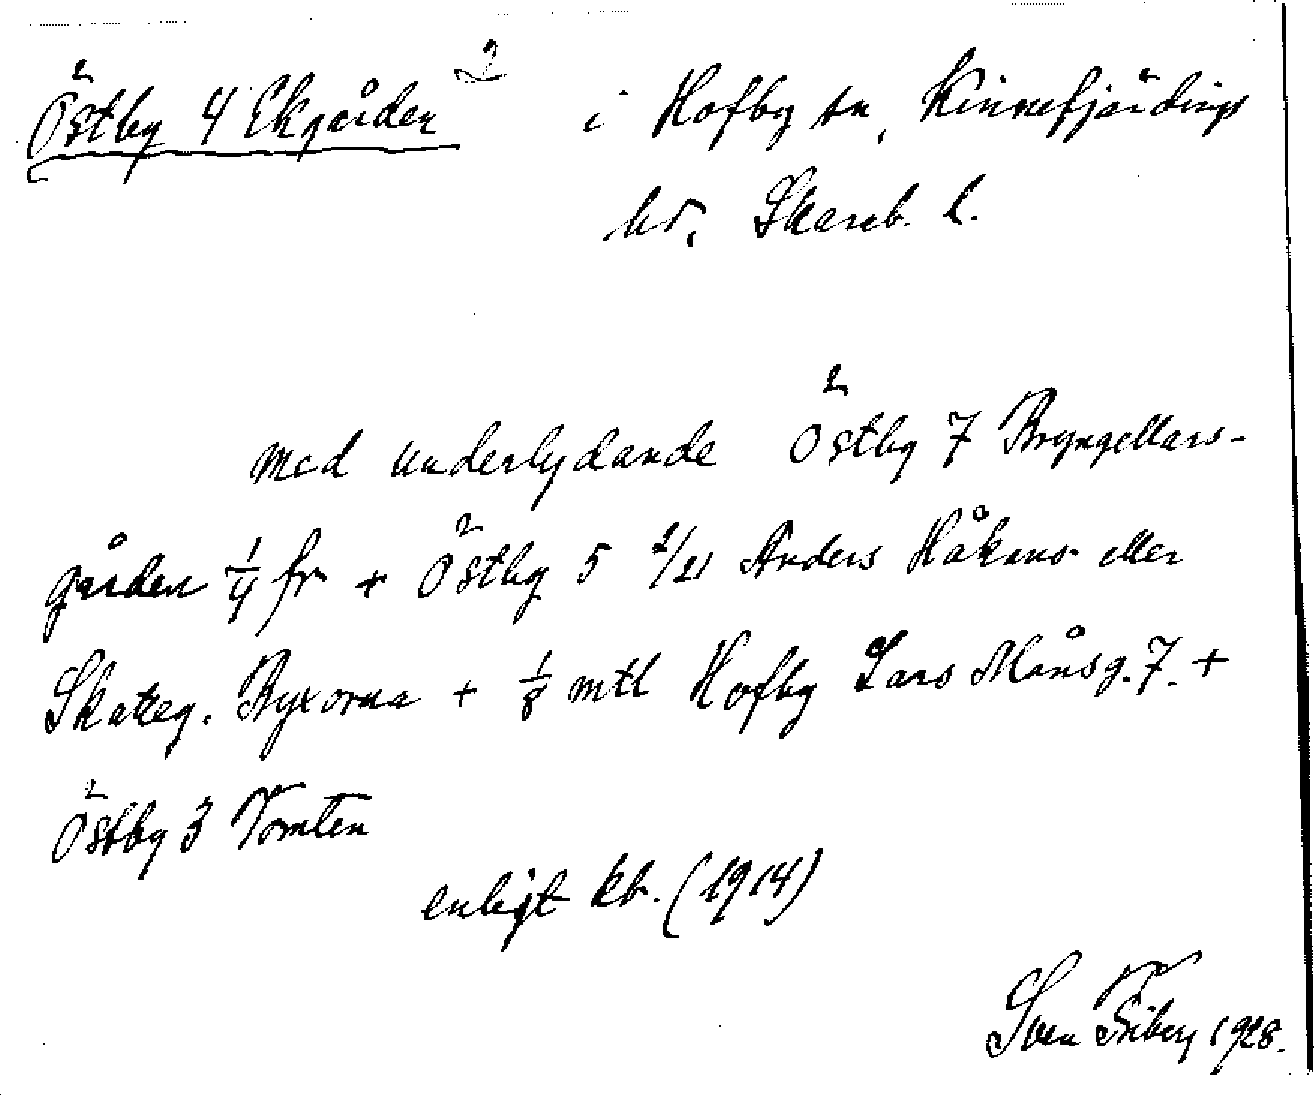 Östby 4 Ekgården 2 i Hofby sn, Kinnefjärdings
hd. Skarab. l.
med underlydande Östby 7 Bryngellars-
gården 1/4 fr + Östby 5 2/21 Anders Håkans eller
Skatteg. Byxorna + 1/8 mtl Hofby Lars Månsg. 7. +
Östby 3 Tomten
enligt kb. (1914)
Sven Friberg 1928.